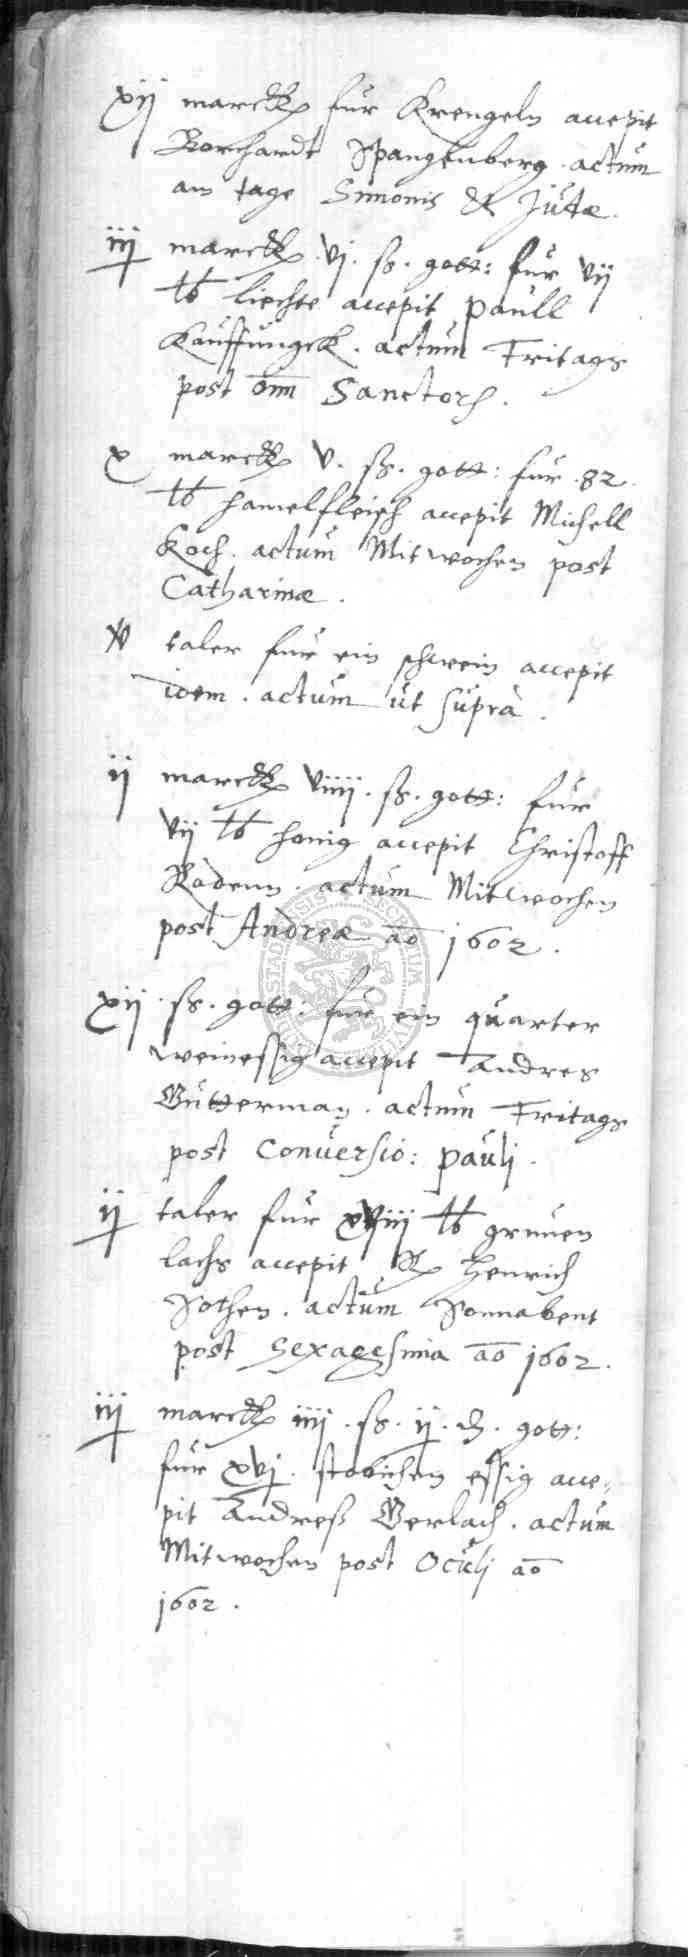 xij marck fur Krengeln accepit
Borchardt Spangenberg . actum
am tage Simonis et Jutæ.
iij marck . vj . ß . gott: fur vij
lb liechte accepit Paull
Kauffungck . actum Fritags
post om̄ Sanctor.
x marck v . ß . gott: fur . 82 .
lb hamelfleisch accepit Michell
Koch . actum Mitwochen post
Catharinæ .
v taler fur ein schwein accepit
idem . actum ut supra .
ij marck viiij . ß . gott: fur
vij lb honig accepit Christoff
Radenn . actum Mitwochen
post Andreæ ao 1602 .
xij . ß . gott: fur ein quarter
weinessig accepit Andres
Gutterman . actum Fritags
post Conversio: Pauli .
ij taler fur xviij lb grunen
lachs accepit Henrich
Sothen . actum Sonnabent
post Sexagesima ao 1602 .
iij marck iiij . ß . ij . d . gott:
fur xvj . stobichen essig acce=
pit Andreß Gerlach . actum
Mitwochen post Oculj ao
1602 .